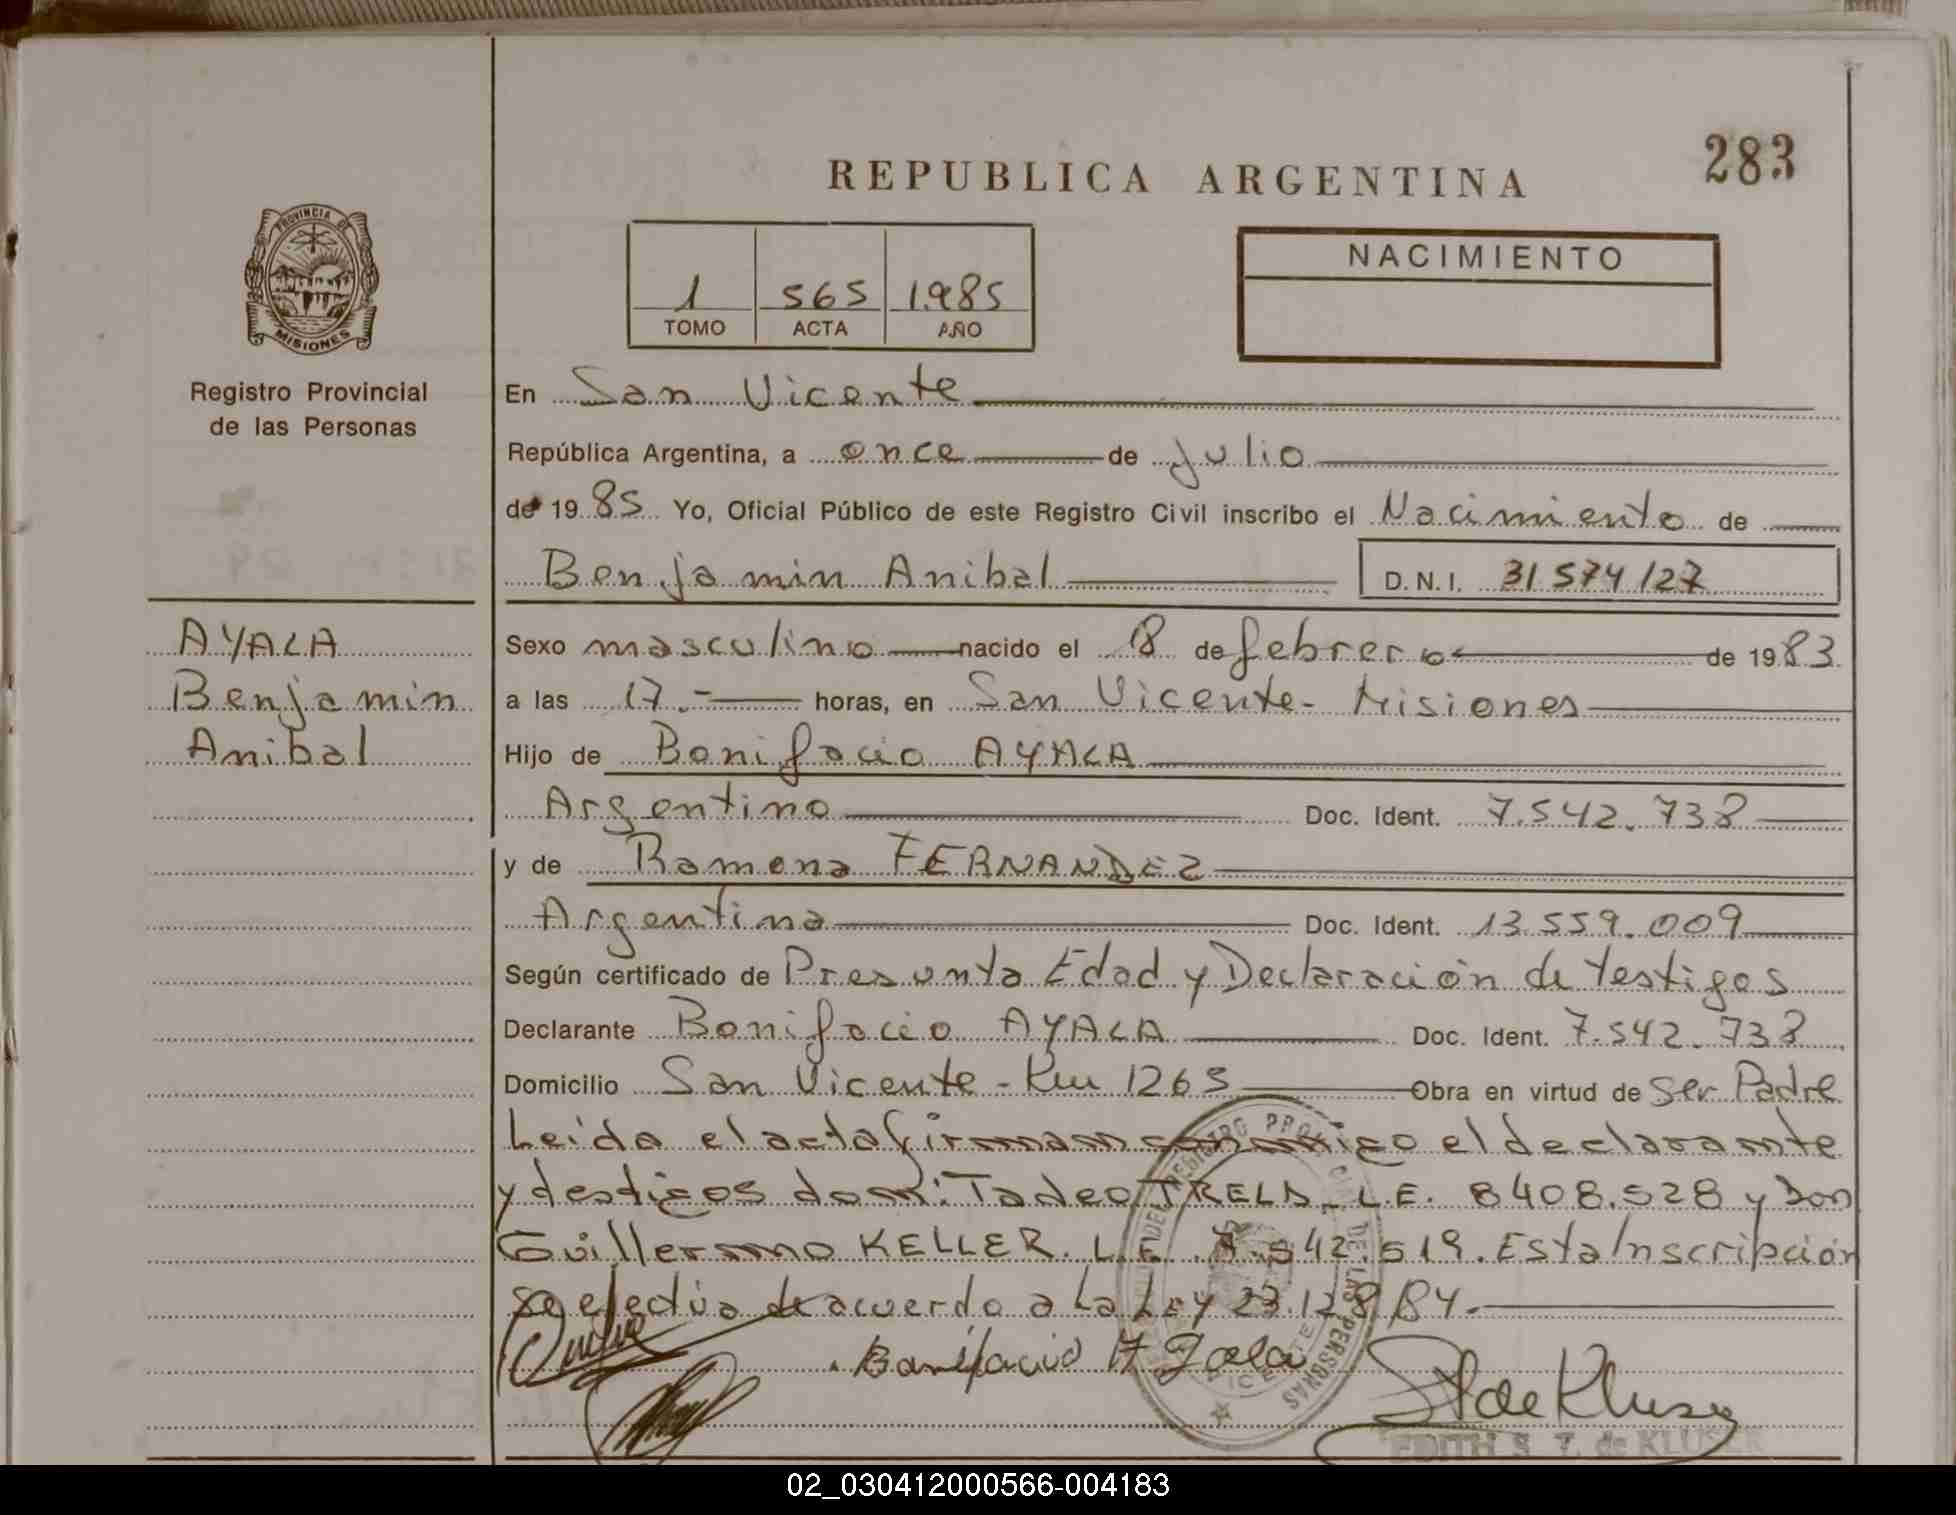 283
REPUBLICA ARGENTINA
PROVINCIA DE
MISIONES
Registro Provincial
de las Personas
1 565 1.985
TOMO ACTA AÑO
NACIMIENTO
En San Vicente
República Argentina, a once de Julio
de 1985 Yo, Oficial Público de este Registro Civil inscribo el Nacimiento de
Benjamin Anibal D.N.I. 31 574 127
AYALA
Benjamin
Anibal
Sexo masculino nacido el 18 de febrero de 1983
a las 17.- horas, en San Vicente- Misiones
Hijo de Bonifacio AYALA
Argentino Doc. Ident. 7.542.738
y de Ramona FERNANDEZ
Argentina Doc. Ident. 13.559.009
Según certificado de Presunta Edad y Declaración de testigos
Declarante Bonifacio AYALA Doc. Ident. 7.542.738
Domicilio San Vicente - Km 1263 Obra en virtud de Ser Padre
Leída el acta firman conmigo el declarante
y testigos don: Tadeo TRELA L.E. 8408.528 y Don
Guillermo KELLER. L.E. 7.542.519. Esta Inscripción
se efectúa de acuerdo a La Ley 23.128/84.
Bonifacio Ayala
de Kluser
EDITH S. T. de KLUSER
REGISTRO PROVINCIAL DE LAS PERSONAS
02_030412000566-004183